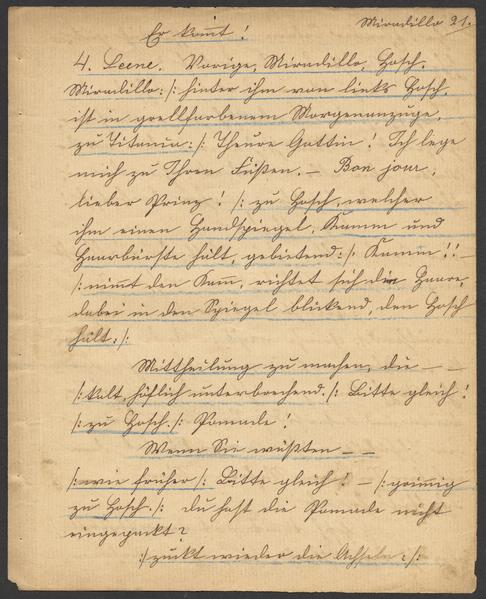 Miradillo 21.
Er kommt!
4. Scene. Vorige, Miradillo, Hosch.
Miradillo: /: hinter ihm von links Hosch,
ist in grellfarbenem Morgenanzuge,
zu Titania: /: Theure Gattin! Ich lege
mich zu Ihren Füßen. – Bon jour,
lieber Prinz! /: zu Hosch, welcher
ihm einen Handspiegel, Kamm und
Haarbürste hält, gebietend: /: Kamm!! –
/: nimmt den Kamm, richtet sich die Haare,
dabei in den Spiegel blickend, den Hosch
hält. /:
Mittheilung zu machen, die – –
/: kalt, höflich unterbrechend. /: Bitte gleich!
/: zu Hosch. /: Pomade!
Wenn Sie wüßten – –
/: wie früher /: Bitte gleich! – /: grimmig
zu Hosch. /: Du hast die Pomade nicht
eingepackt?
/: zuckt wieder die Achseln. /: